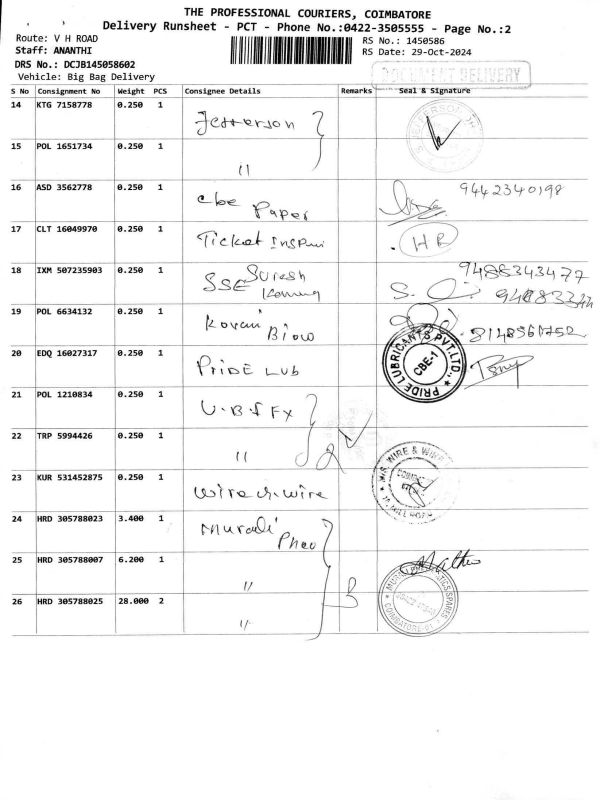 THE PROFESSIONAL COURIERS, COIMBATORE
Delivery Runsheet - PCT - Phone No.:0422-3505555 - Page No.:2
Route: V H ROAD
RS No.: 1450586
Staff: ANANTHI
RS Date: 29-Oct-2024
DRS No.: DCJB145058602
Vehicle: Big Bag Delivery
DOCUMENT DELIVERY
S No Consignment No Weight PCS Consignee Details Remarks Seal & Signature
14 KTG 7158778 0.250 1 Jefferson
15 POL 1651734 0.250 1 〃
16 ASD 3562778 0.250 1 Cbe Paper 9442340198
17 CLT 16049970 0.250 1 Ticket HR
18 IXM 507235903 0.250 1 SSE Suresh 9488343477
S.
19 POL 6634132 0.250 1 8148560752
20 EDQ 16027317 0.250 1 PRIDE LUB
PRIDE LUBRICANTS PVT.LTD., CBE-1
21 POL 1210834 0.250 1 U.B.S FX
22 TRP 5994426 0.250 1 〃 2
23 KUR 531452875 0.250 1 Wire & Wire
M/S. WIRE & WIRE
24 HRD 305788023 3.400 1 Murali
25 HRD 305788007 6.200 1 〃
26 HRD 305788025 28.000 2 〃 B
COIMBATORE-01